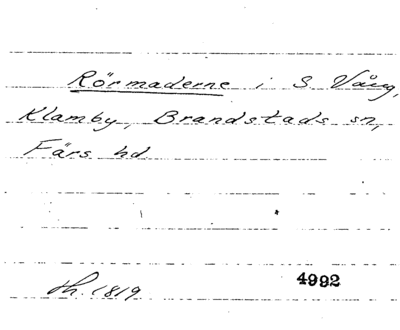 Rörmaderne i S Vång,
Klamby, Brandstads sn,
Färs hd
sh. 1819 4992